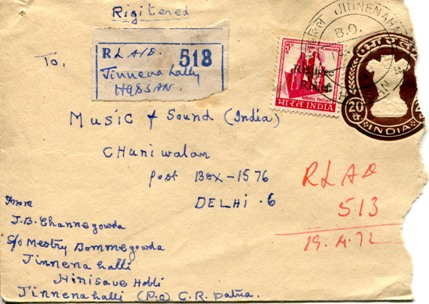 Rigistered
JINNENAHA
B.O.
To,
RLAD.
518
Jinnena hally
HASSAN.
Refugee
Relief
भारत INDIA
20
INDIA
Music & Sound (India)
Chuniwalan
Post Box-1576
DELHI.6
RLAD
513
19.4.72
From
J.B. Channegowda
S/o Mestry Bommegowda
Jinnena halli
Hirisave Hobli
Jinnena halli (P.o) C.R. Patna.